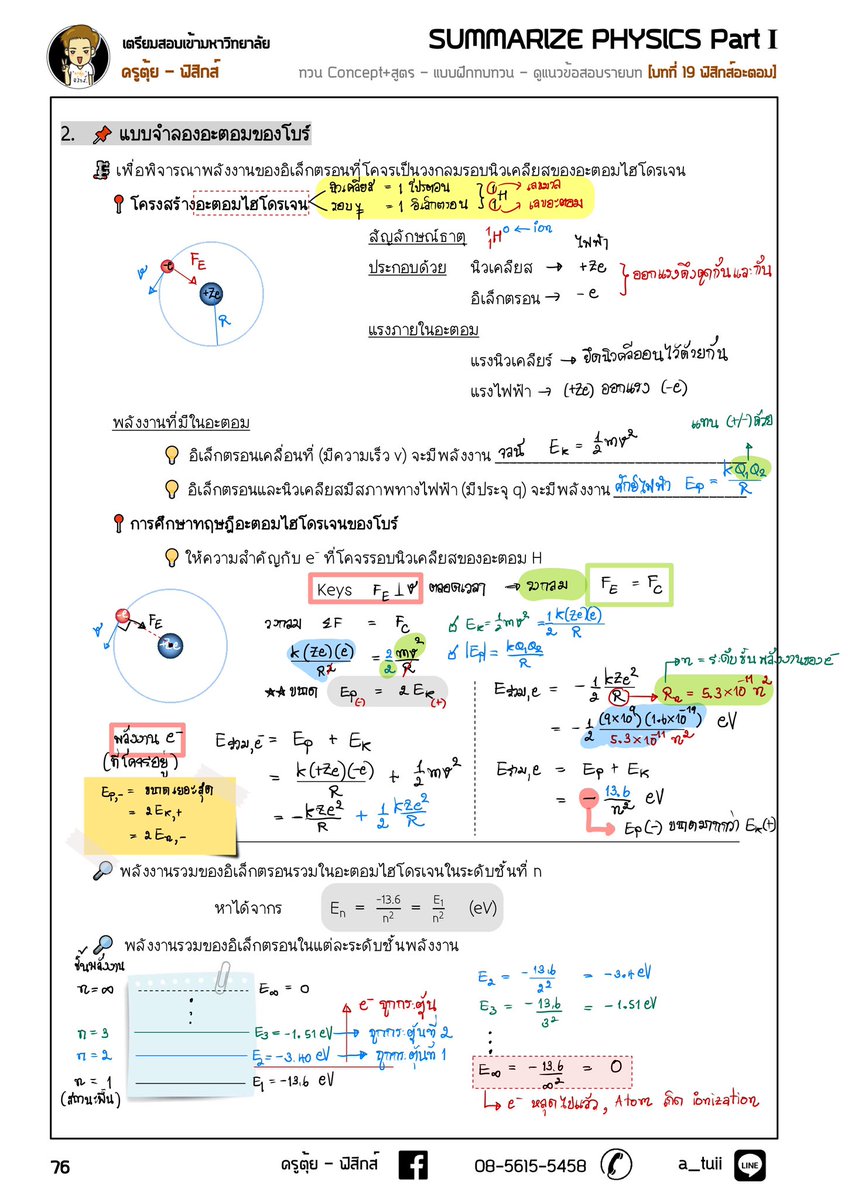 เตรียมสอบเข้ามหาวิทยาลัย
SUMMARIZE PHYSICS Part I
ครูตุ้ย – ฟิสิกส์
ทวน Concept+สูตร – แบบฝึกทบทวน – ดูแนวข้อสอบรายบท [บทที่ 19 ฟิสิกส์อะตอม]
2. แบบจำลองอะตอมของโบร์
เพื่อพิจารณาพลังงานของอิเล็กตรอนที่โคจรเป็นวงกลมรอบนิวเคลียสของอะตอมไฮโดรเจน
โครงสร้างอะตอมไฮโดรเจน
นิวเคลียส = 1 โปรตอน
= 1 อิเล็กตรอน
1 → เลขมวล
1 → เลขอะตอม
H
สัญลักษณ์ธาตุ ¹₁H⁰ ← ion
ไฟฟ้า
ประกอบด้วย นิวเคลียส → +Ze
อิเล็กตรอน → -e
ออกแรงดึงดูดกันและกัน
-e F_E v +Ze R
แรงภายในอะตอม
แรงนิวเคลียร์ → ยึดนิวคลีออนไว้ด้วยกัน
แรงไฟฟ้า → (+Ze) ออกแรง (-e)
พลังงานที่มีในอะตอม
แทน (+/-) ด้วย
อิเล็กตรอนเคลื่อนที่ (มีความเร็ว v) จะมีพลังงาน จลน์ E_K = 1/2 mv²
อิเล็กตรอนและนิวเคลียสมีสภาพทางไฟฟ้า (มีประจุ q) จะมีพลังงาน ศักย์ไฟฟ้า E_P = kQ₁Q₂/R
การศึกษาทฤษฎีอะตอมไฮโดรเจนของโบร์
ให้ความสำคัญกับ e⁻ ที่โคจรรอบนิวเคลียสของอะตอม H
Keys F_E ⊥ v ตลอดเวลา → วงกลม F_E = F_C
-e F_E v +Ze
วงกลม ΣF = F_C
E_K = 1/2 mv² = 1/2 k(Ze)(e)/R
k(Ze)(e)/R² = 2/2 mv²/R
|E_P| = kQ₁Q₂/R
n = ระดับชั้นพลังงานของ e⁻
★★ ขนาด E_P(-) = 2E_K(+)
E รวม,e = -1/2 kZe²/R → R_e = 5.3×10⁻¹¹ n²
= -1/2 (9×10⁹)(1.6×10⁻¹⁹)/5.3×10⁻¹¹ n² eV
พลังงาน e⁻
(ที่โคจรอยู่)
E รวม,e⁻ = E_P + E_K
= k(+Ze)(-e)/R + 1/2 mv²
= -kZe²/R + 1/2 kZe²/R
E รวม,e = E_P + E_K
= -13.6/n² eV
E_P(-) ขนาดมากกว่า E_K(+)
E_P,- = ขนาดเยอะสุด
= 2E_K,+
พลังงานรวมของอิเล็กตรอนรวมในอะตอมไฮโดรเจนในระดับชั้นที่ n
หาได้จาก E_n = -13.6/n² = E₁/n² (eV)
พลังงานรวมของอิเล็กตรอนในแต่ละระดับชั้นพลังงาน
ชั้นพลังงาน
n = ∞ E∞ = 0
e⁻ ถูกกระตุ้น
n = 3 E₃ = -1.51 eV → ถูกกระตุ้นที่ 2
n = 2 E₂ = -3.40 eV → ถูกกระตุ้นที่ 1
n = 1 E₁ = -13.6 eV
(สถานะพื้น)
E₂ = -13.6/2² = -3.4 eV
E₃ = -13.6/3² = -1.51 eV
E∞ = -13.6/∞² = 0
e⁻ หลุดไปแล้ว, Atom เกิด ionization
76
ครูตุ้ย – ฟิสิกส์
08-5615-5458
a_tuii
LINE